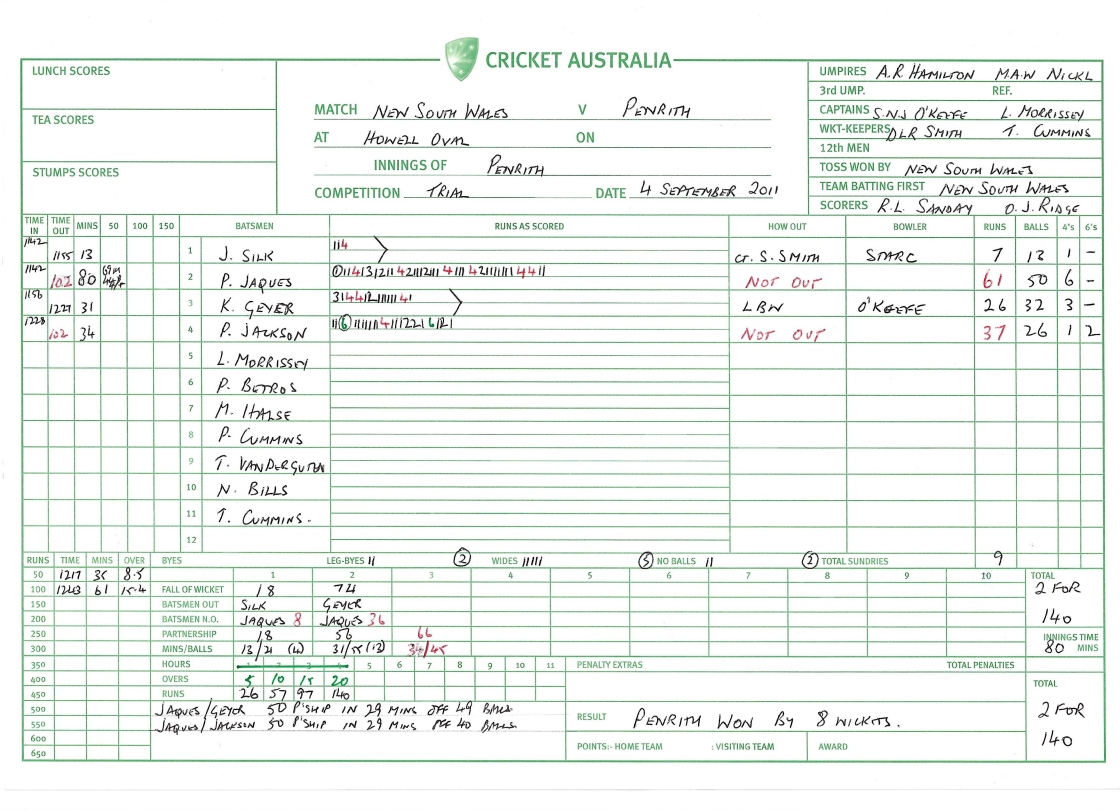 CRICKET AUSTRALIA
LUNCH SCORES
TEA SCORES
STUMPS SCORES
MATCH NEW SOUTH WALES V PENRITH
AT HOWELL OVAL ON
INNINGS OF PENRITH
COMPETITION TRIAL DATE 4 SEPTEMBER 2011
UMPIRES A.R HAMILTON M.A.W NICKL
3rd UMP. REF.
CAPTAINS S.N.J O'KEEFE L. MORRISSEY
WKT-KEEPERS DLR SMITH T. CUMMINS
12th MEN
TOSS WON BY NEW SOUTH WALES
TEAM BATTING FIRST NEW SOUTH WALES
SCORERS R.L. SANDAY D.J. RIDGE
TIME IN TIME OUT MINS 50 100 150 BATSMEN RUNS AS SCORED HOW OUT BOWLER RUNS BALLS 4's 6's
1142 1155 13 1 J. SILK 114 CT. S. SMITH STARC 7 13 1 -
1142 102 80 2 P. JAQUES NOT OUT 61 50 6 -
1156 1227 31 3 K. GEYER LBW O'KEEFE 26 32 3 -
1228 102 34 4 P. JACKSON NOT OUT 37 26 1 2
5 L. MORRISSEY
6 P. BETROS
7 M. HALSE
8 P. CUMMINS
9 T. VANDERGUTEN
10 N. BILLS
11 T. CUMMINS.
12
RUNS TIME MINS OVER BYES LEG-BYES 11 2 WIDES 11111 5 NO BALLS 11 2 TOTAL SUNDRIES 9
50 1217 35 8.5 1 2 3 4 5 6 7 8 9 10 TOTAL
100 1243 61 15.4 FALL OF WICKET 18 74 2 FOR
150 BATSMEN OUT SILK GEYER
200 BATSMEN N.O. JAQUES 8 JAQUES 36 140
250 PARTNERSHIP 18 56 66 INNINGS TIME
300 MINS/BALLS 13/21 (4) 31/55 (12) 34/45 80 MINS
350 HOURS 1 2 3 4 5 6 7 8 9 10 11 PENALTY EXTRAS TOTAL PENALTIES
400 OVERS 5 10 15 20 TOTAL
450 RUNS 26 57 97 140
500 JAQUES/GEYER 50 P'SHIP IN 29 MINS OFF 49 BALLS 2 FOR
550 JAQUES/JACKSON 50 P'SHIP IN 29 MINS OFF 40 BALLS RESULT PENRITH WON BY 8 WICKETS.
600 140
650 POINTS:- HOME TEAM : VISITING TEAM AWARD